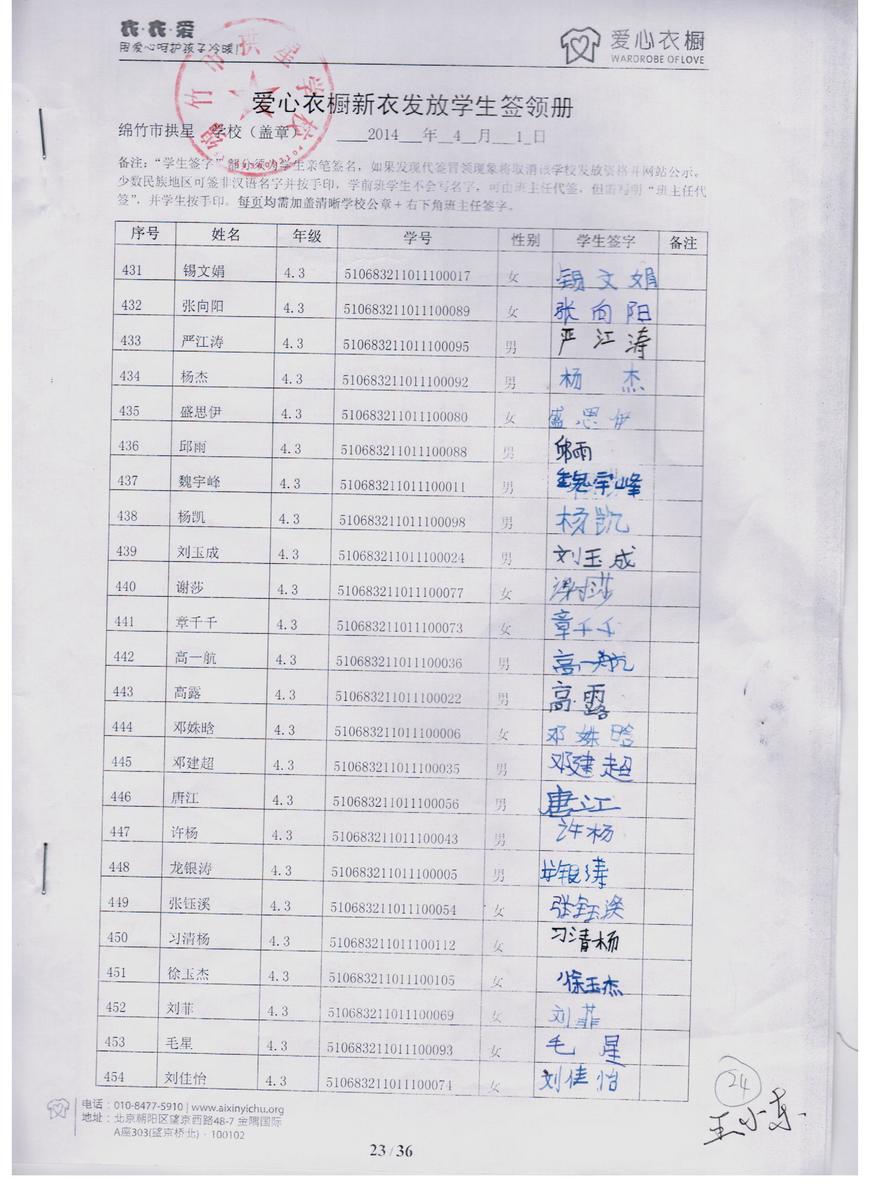 衣·衣·爱
用爱心呵护孩子冷暖!
爱心衣橱
WARDROBE OF LOVE
绵竹市拱星学校
爱心衣橱新衣发放学生签领册
绵竹市拱星 学校（盖章） 2014 年 4 月 1 日
备注：“学生签字”部分须为学生亲笔签名，如果发现代签冒领现象将取消该学校发放资格并网站公示。
少数民族地区可签非汉语名字并按手印，学前班学生不会写名字，可由班主任代签，但需写明“班主任代
签”，并学生按手印。每页均需加盖清晰学校公章+右下角班主任签字。
序号 姓名 年级 学号 性别 学生签字 备注
431 锡文娟 4.3 510683211011100017 女 锡文娟
432 张向阳 4.3 510683211011100089 女 张向阳
433 严江涛 4.3 510683211011100095 男 严江涛
434 杨杰 4.3 510683211011100092 男 杨杰
435 盛思伊 4.3 510683211011100080 女 盛思伊
436 邱雨 4.3 510683211011100088 男 邱雨
437 魏宇峰 4.3 510683211011100011 男 魏宇峰
438 杨凯 4.3 510683211011100098 男 杨凯
439 刘玉成 4.3 510683211011100024 男 刘玉成
440 谢莎 4.3 510683211011100077 女 谢莎
441 章千千 4.3 510683211011100073 女 章千千
442 高一航 4.3 510683211011100036 男 高一航
443 高露 4.3 510683211011100022 男 高露
444 邓姝晗 4.3 510683211011100006 女 邓姝晗
445 邓建超 4.3 510683211011100035 男 邓建超
446 唐江 4.3 510683211011100056 男 唐江
447 许杨 4.3 510683211011100043 男 许杨
448 龙银涛 4.3 510683211011100005 男 龙银涛
449 张钰溪 4.3 510683211011100054 女 张钰溪
450 习清杨 4.3 510683211011100112 女 习清杨
451 徐玉杰 4.3 510683211011100105 女 徐玉杰
452 刘菲 4.3 510683211011100069 女 刘菲
453 毛星 4.3 510683211011100093 女 毛星
454 刘佳怡 4.3 510683211011100074 女 刘佳怡
24
王小东
电话：010-8477-5910 | www.aixinyichu.org
地址：北京朝阳区望京西路48-7 金隅国际
A座303(望京桥北)·100102
23/36